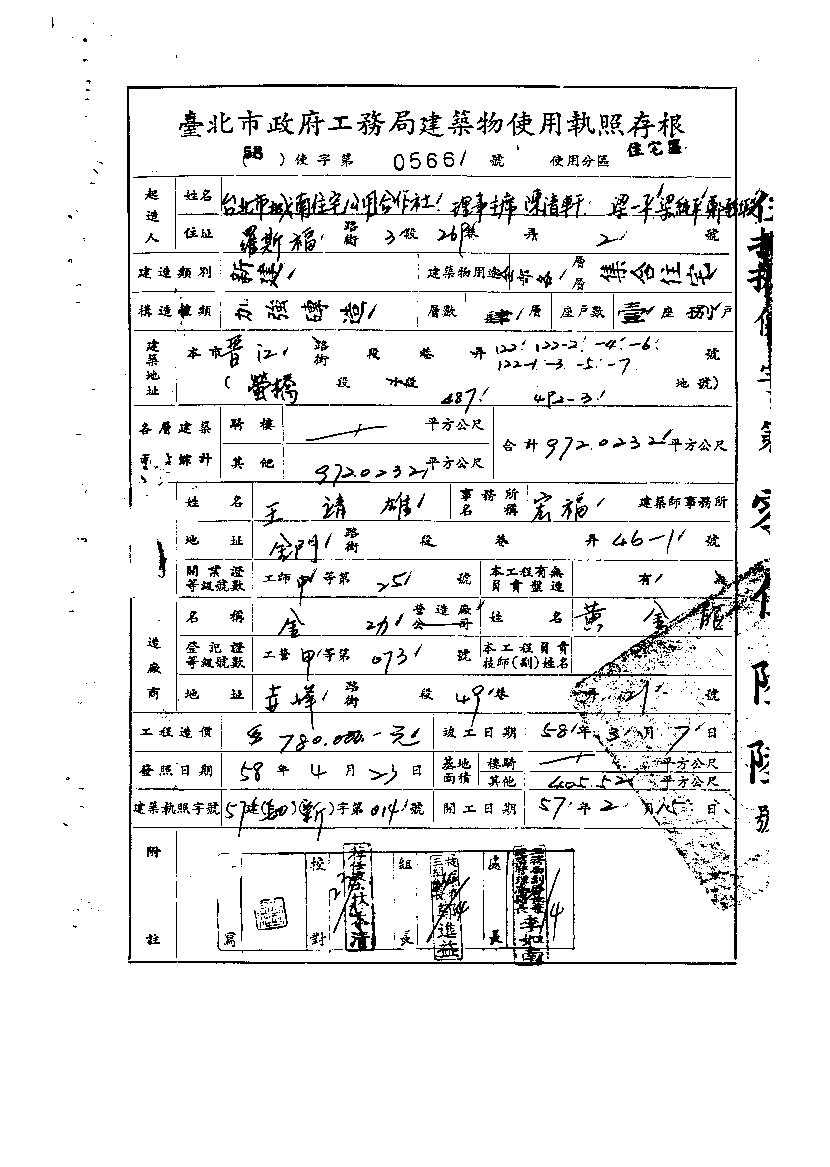 臺北市政府工務局建築物使用執照存根
(58)使字第 0566 號 使用分區 住宅區
起造人 姓名 台北市城南住宅公用合作社 理事主席 陳清軒 梁一平
住址 羅斯福 路街 3段 269巷 弄 2 號
建造類別 新建 建築物用途 全部各層層 集合住宅
構造種類 加強磚造 層數 肆層 座戶數 壹座 捌戶
建築地址 本市 晋江 路街 段 巷 弄 122 122-2 -4 -6 號
122-1 -3 -5 -7
(螢橋 段 小段 487 492-3 地號)
各層建築 騎樓 平方公尺 合計 972.0232 平方公尺
其他 972.0232 平方公尺
姓名 王靖雄 事務所名稱 宏福 建築師事務所
地址 金門 路街 段 巷 弄 46-1 號
開業證等級號數 工師甲等第 251 號 本工程有無負責監造 有
名稱 金功 營造廠公司 姓名 黃金
造廠商
登記證等級號數 工營甲等第 073 號 本工程負責技師(副)姓名
地址 吉祥 路街 段 49巷 弄 29 號
工程造價 780.000.-元 竣工日期 58年 3月 7日
發照日期 58年 4月 23日 基地面積 樓騎 平方公尺
其他 405.52 平方公尺
建築執照字號 57建()(新)字第014號 開工日期 57年 2月 15日
附註 寫 校對 組長 處長
李如南